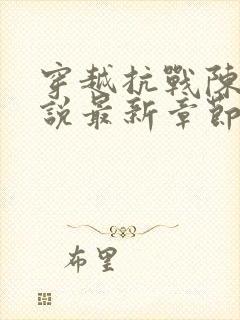 穿越抗戰陳
說最新章節
布里